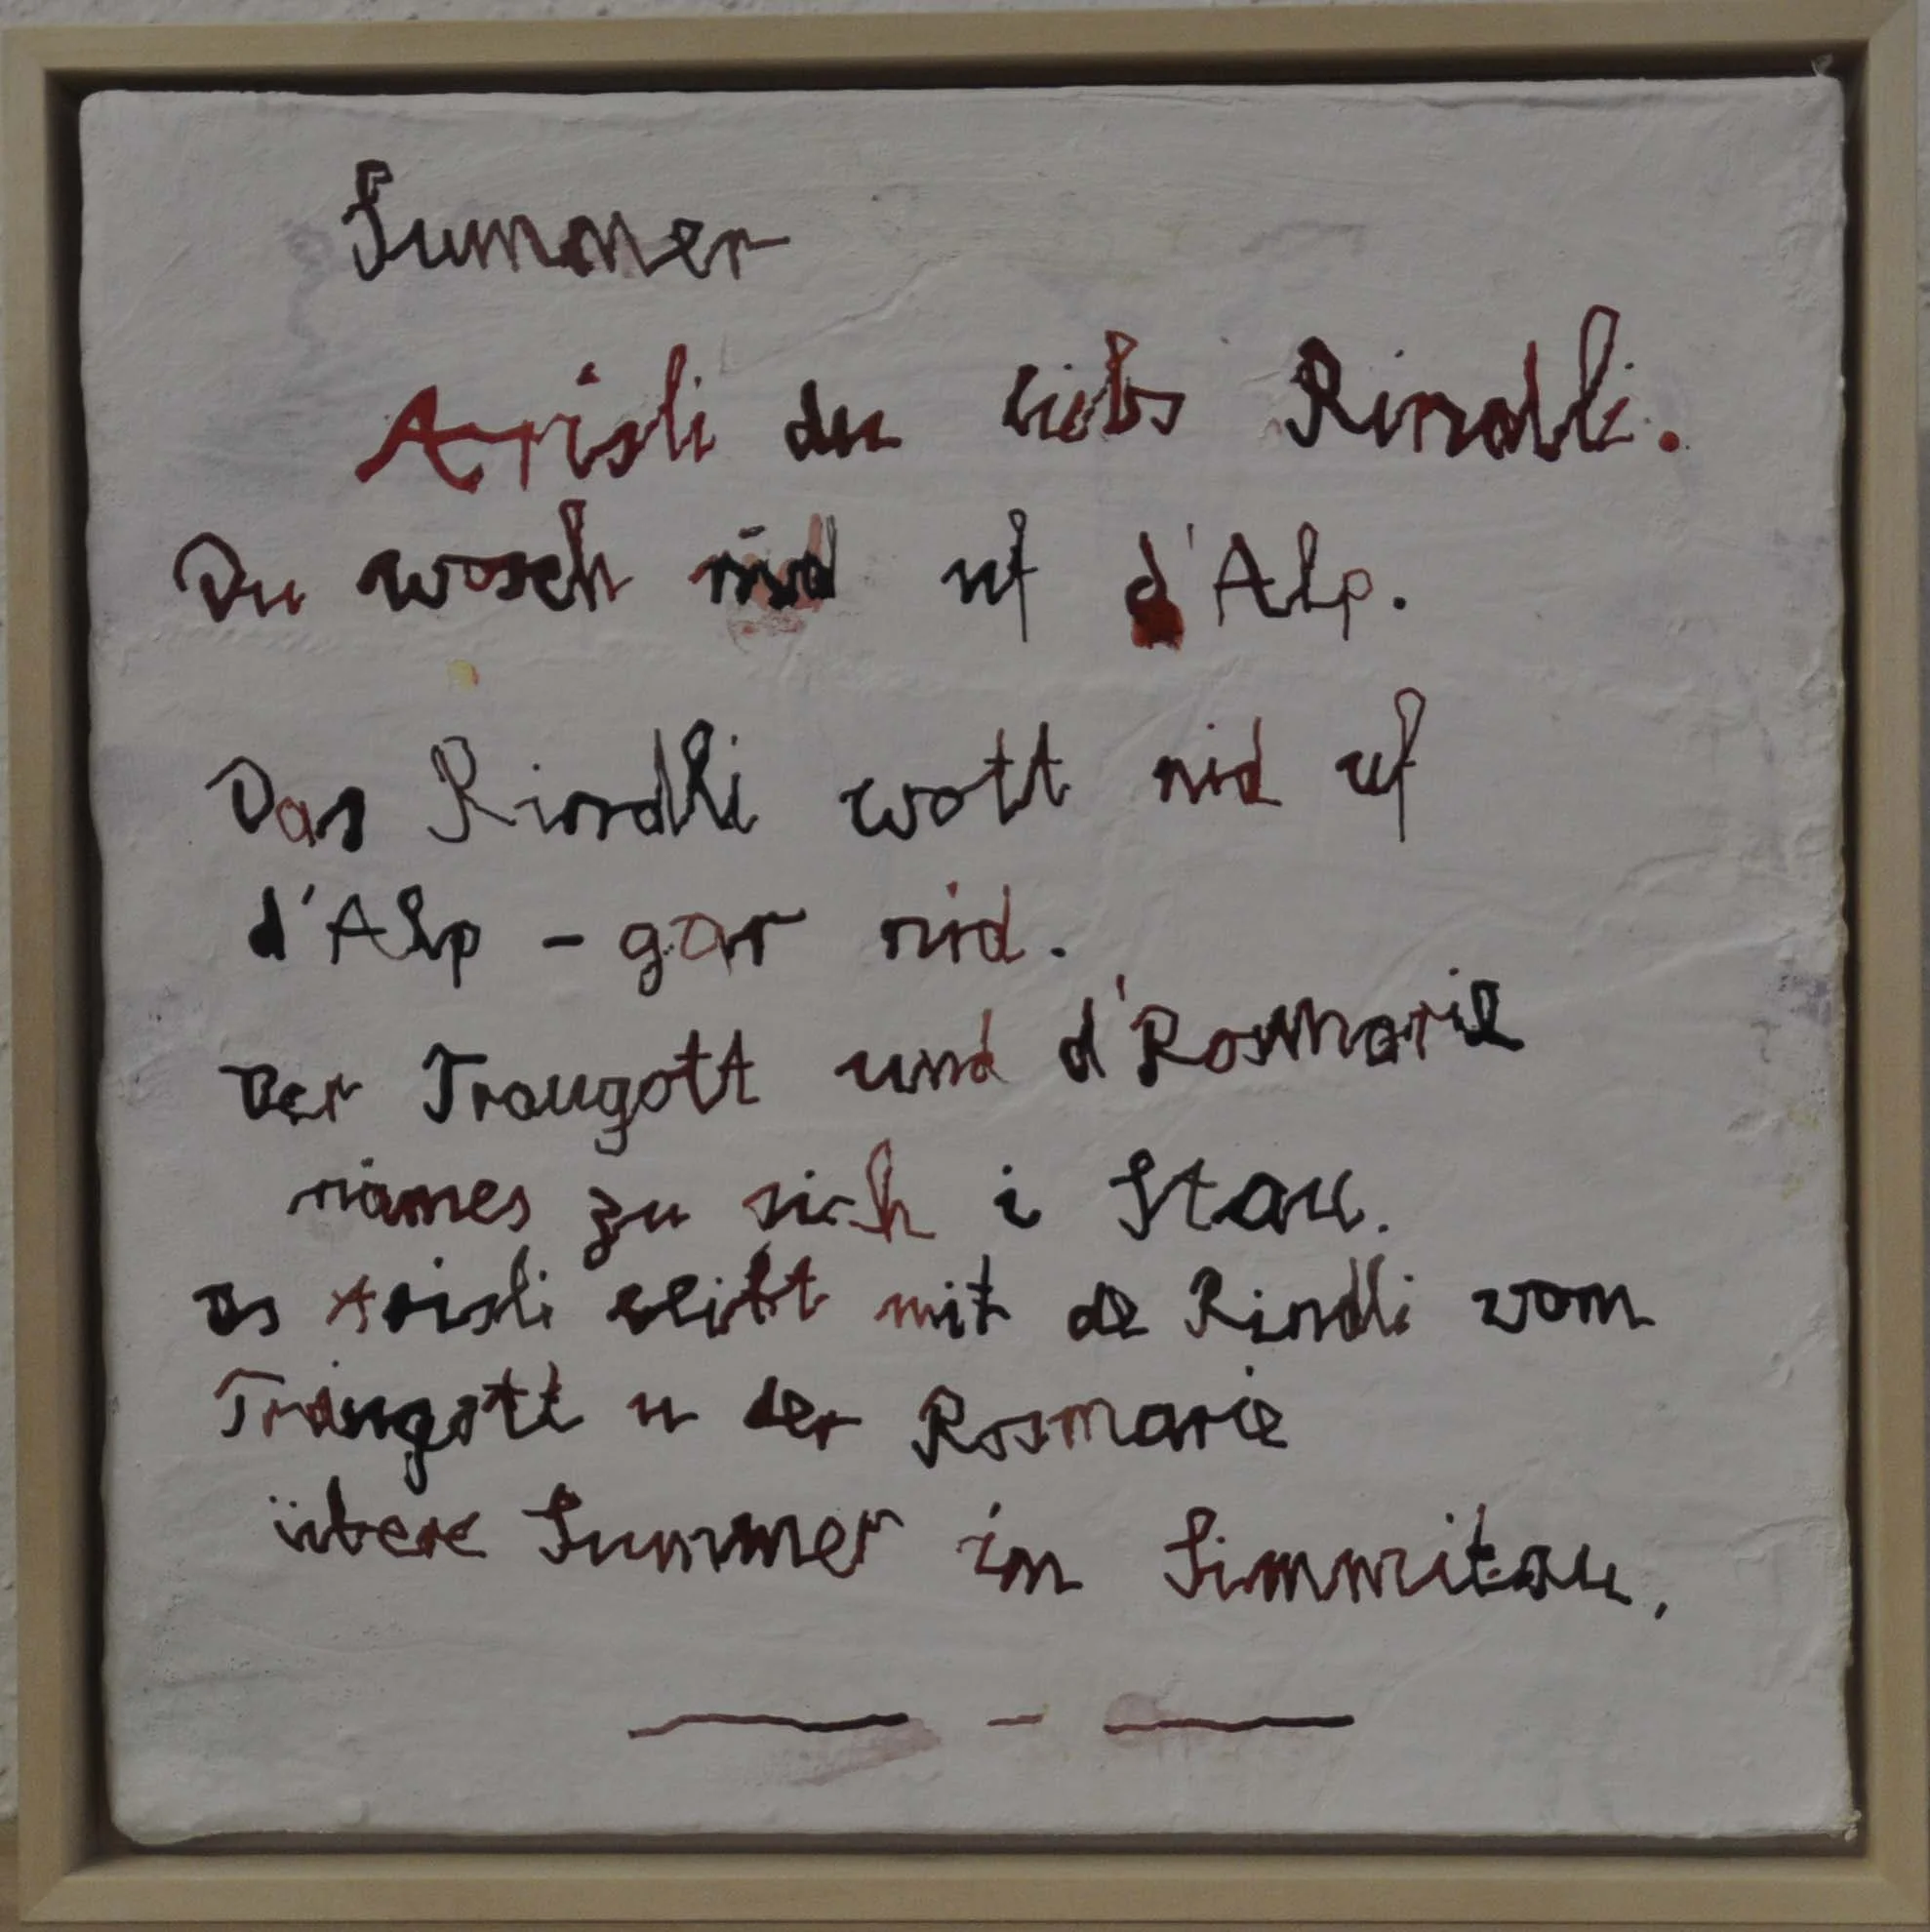 Summer
Arisli du liebs Rindli.
Du wosch nid uf d'Alp.
Das Rindli wott nid uf
d'Alp - gar nid.
Der Traugott und d'Rosmarie
nämes zu sich i Stau.
Ds Arisli bleibt mit de Rindli vom
Traugott u der Rosmarie
übere Summer im Simmitau.